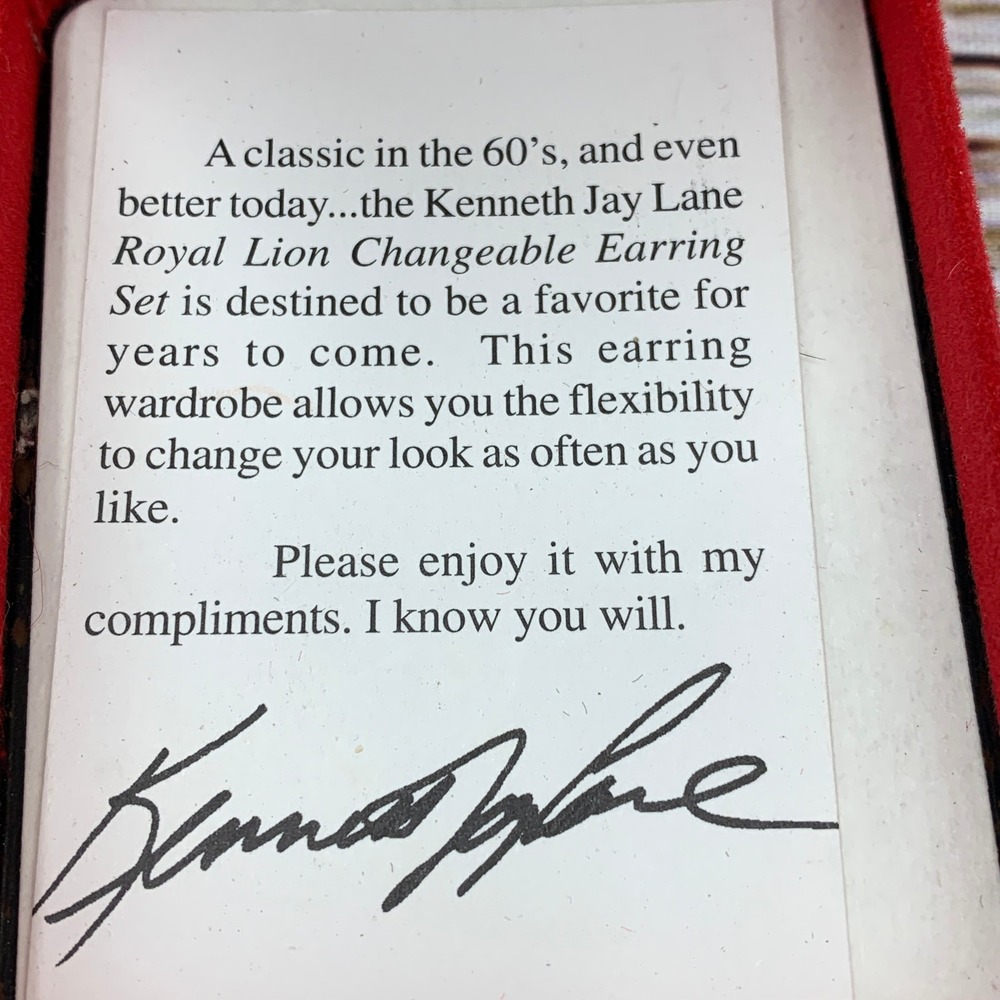 A classic in the 60's, and even
better today...the Kenneth Jay Lane
Royal Lion Changeable Earring
Set is destined to be a favorite for
years to come. This earring
wardrobe allows you the flexibility
to change your look as often as you
like.
Please enjoy it with my
compliments. I know you will.
Kenneth Jay Lane